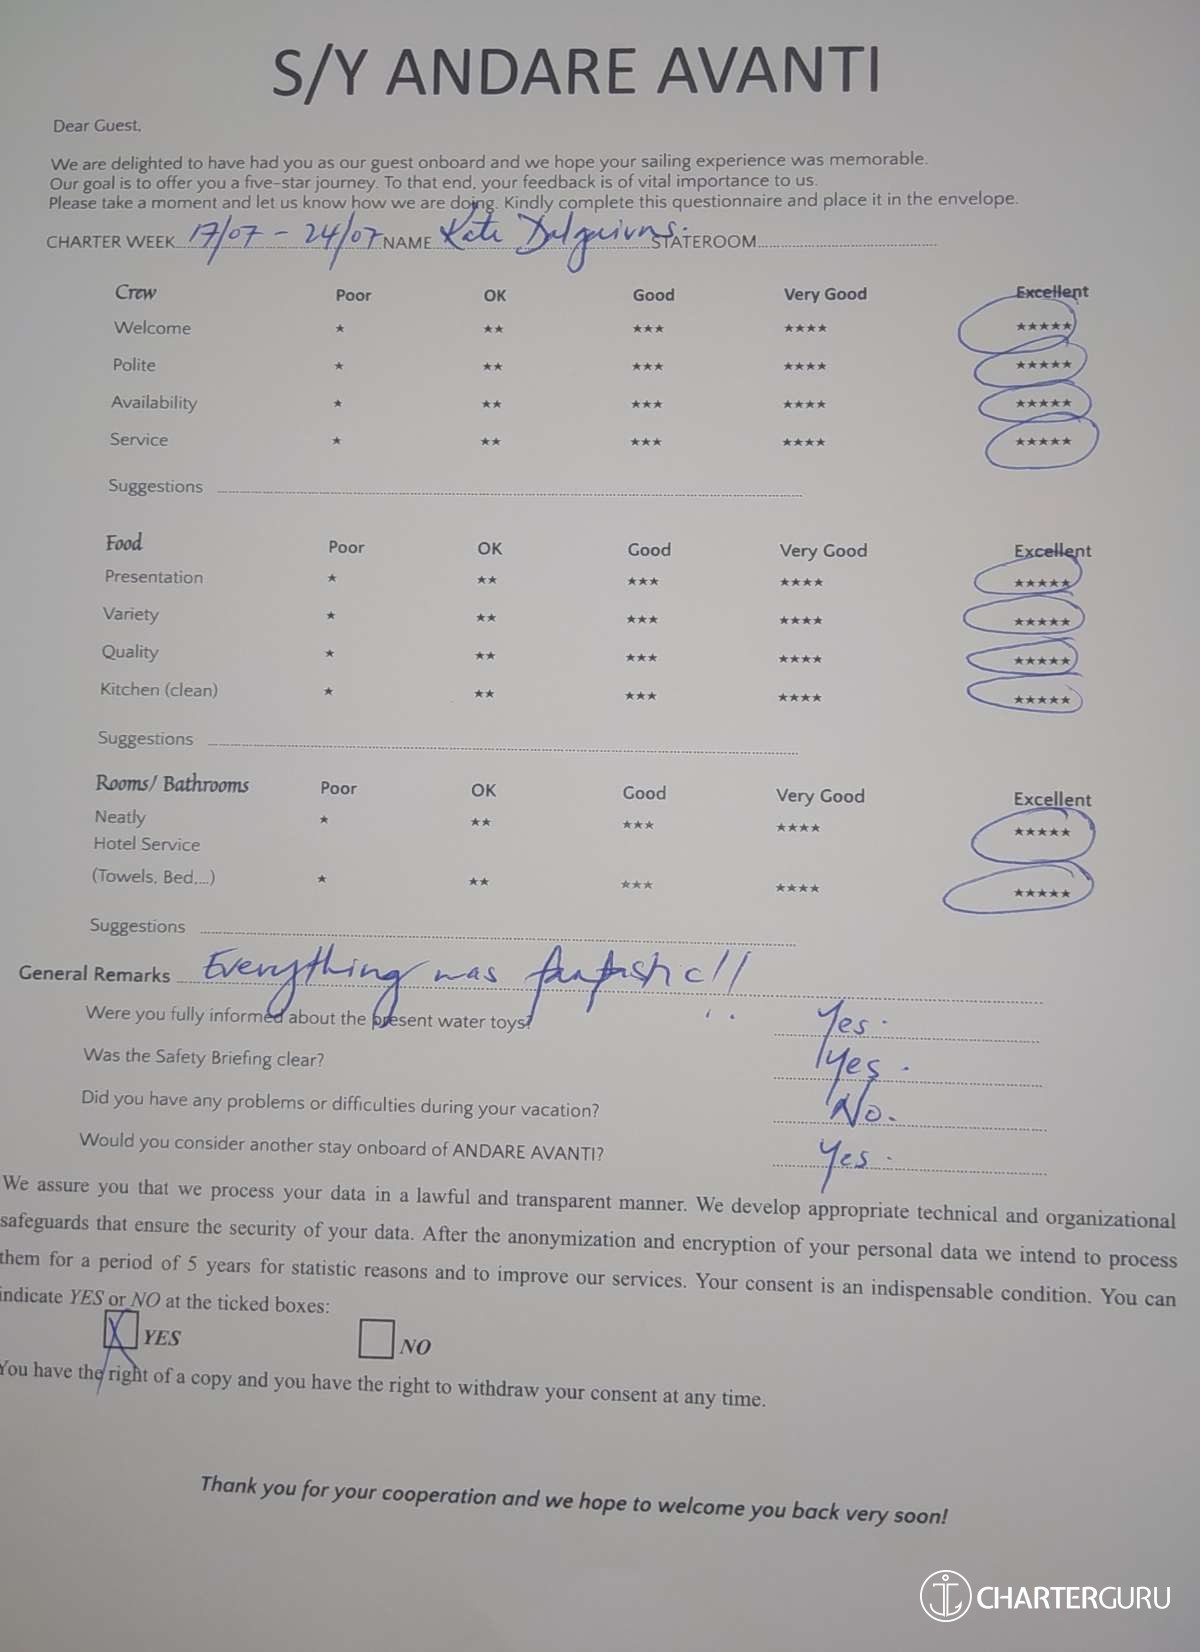 S/Y ANDARE AVANTI
Dear Guest,
We are delighted to have had you as our guest onboard and we hope your sailing experience was memorable.
Our goal is to offer you a five-star journey. To that end, your feedback is of vital importance to us.
Please take a moment and let us know how we are doing. Kindly complete this questionnaire and place it in the envelope.
CHARTER WEEK 17/07 - 24/07 NAME Kate STATEROOM
Crew Poor OK Good Very Good Excellent
Welcome ★ ★★ ★★★ ★★★★ ★★★★★
Polite ★ ★★ ★★★ ★★★★ ★★★★★
Availability ★ ★★ ★★★ ★★★★ ★★★★★
Service ★ ★★ ★★★ ★★★★ ★★★★★
Suggestions
Food Poor OK Good Very Good Excellent
Presentation ★ ★★ ★★★ ★★★★ ★★★★★
Variety ★ ★★ ★★★ ★★★★ ★★★★★
Quality ★ ★★ ★★★ ★★★★ ★★★★★
Kitchen (clean) ★ ★★ ★★★ ★★★★ ★★★★★
Suggestions
Rooms/ Bathrooms Poor OK Good Very Good Excellent
Neatly ★ ★★ ★★★ ★★★★ ★★★★★
Hotel Service
(Towels, Bed,...) ★ ★★ ★★★ ★★★★ ★★★★★
Suggestions
General Remarks Everything was fantastic!!
Were you fully informed about the present water toys? Yes.
Was the Safety Briefing clear? Yes.
Did you have any problems or difficulties during your vacation? No.
Would you consider another stay onboard of ANDARE AVANTI? Yes.
We assure you that we process your data in a lawful and transparent manner. We develop appropriate technical and organizational
safeguards that ensure the security of your data. After the anonymization and encryption of your personal data we intend to process
them for a period of 5 years for statistic reasons and to improve our services. Your consent is an indispensable condition. You can
indicate YES or NO at the ticked boxes:
X YES NO
You have the right of a copy and you have the right to withdraw your consent at any time.
Thank you for your cooperation and we hope to welcome you back very soon!
CHARTERGURU